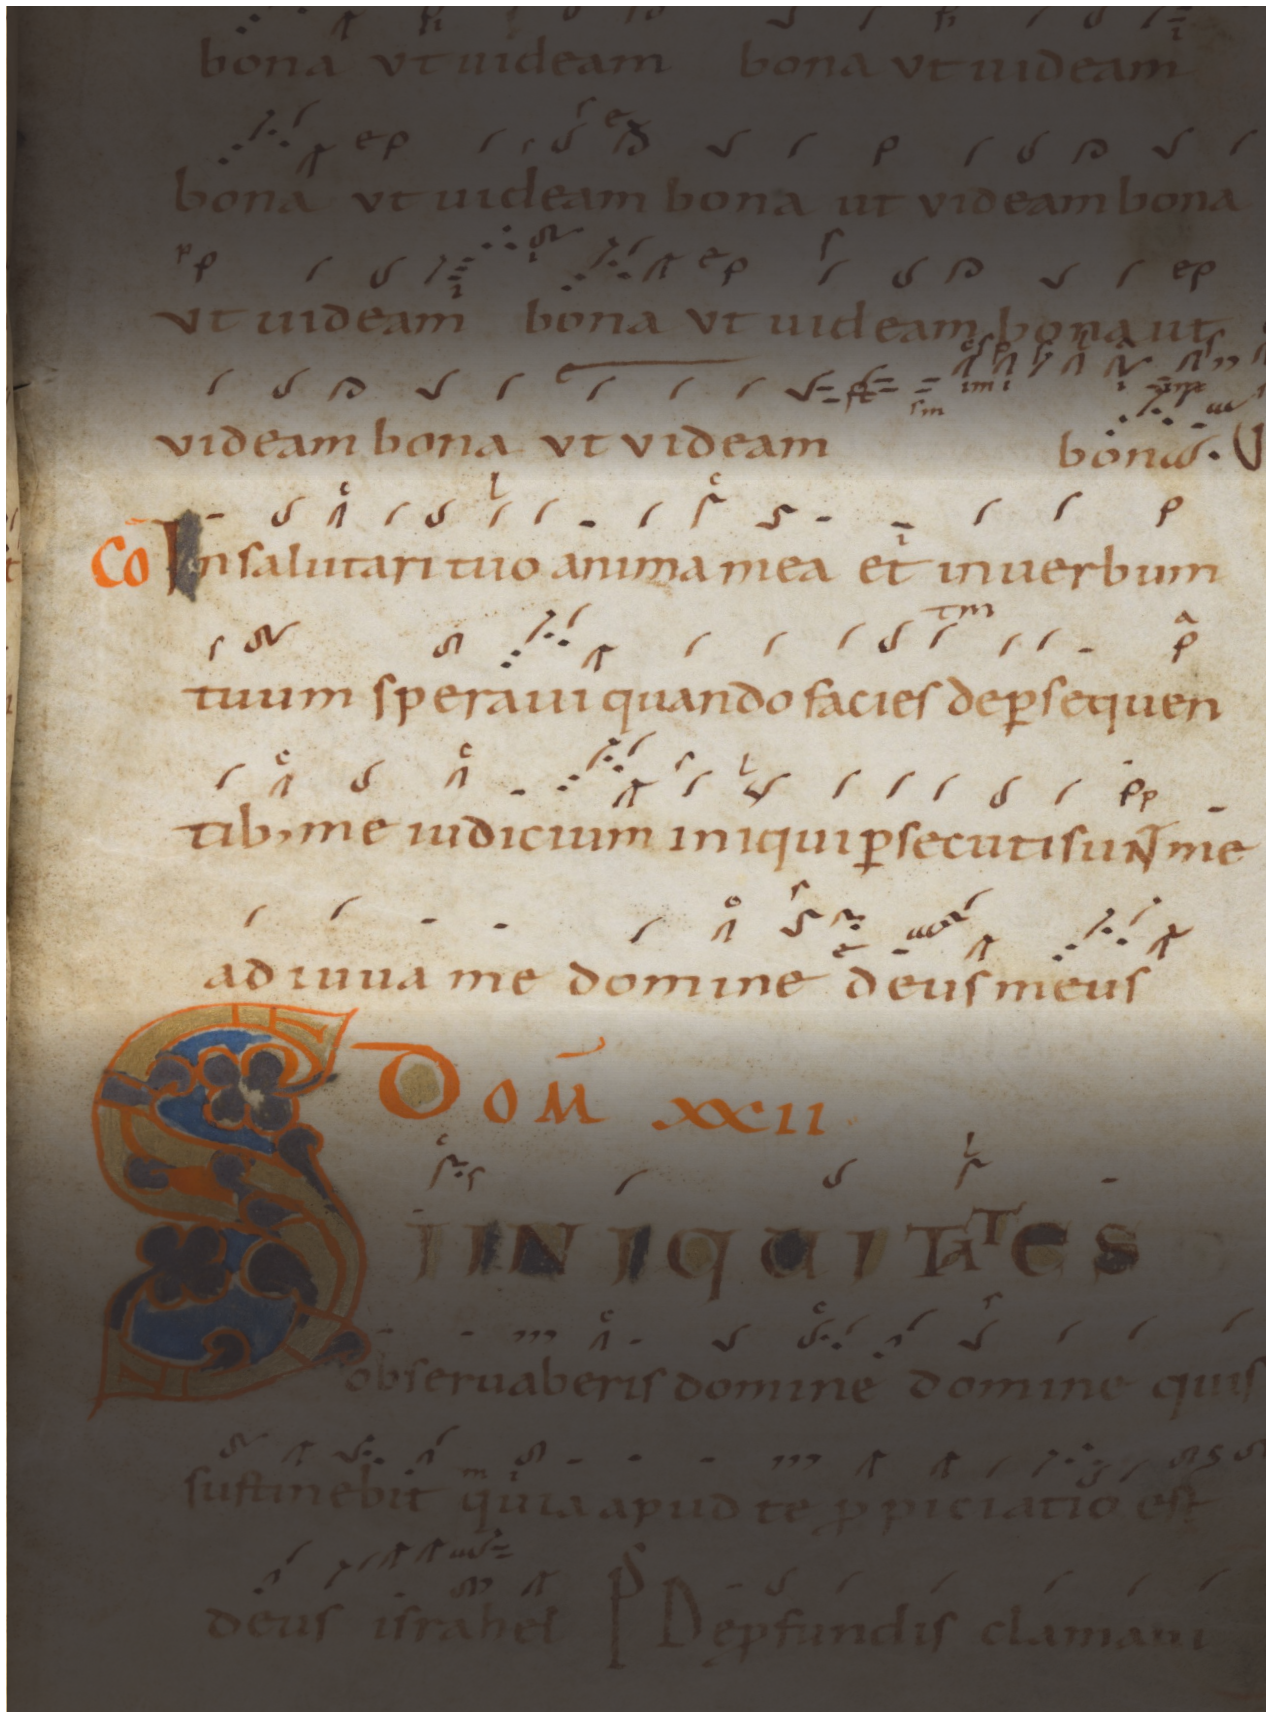 bona vt uideam bona vt uideam
bona vt uideam bona ut videam bona
vt uideam bona vt uideam bona ut
videam bona vt videam bona.
Co In salutari tuo anima mea et in uerbum
tuum speraui quando facies de ꝑsequen
tib; me iudicium iniqui ꝑsecuti sunt me
ad iuua me domine deus meus
Dom̄ xxii
SI INIQUITATES
obseruaberis domine domine quis
sustinebit quia apud te ꝓpiciatio est
deus israhel P De ꝓfundis clamaui